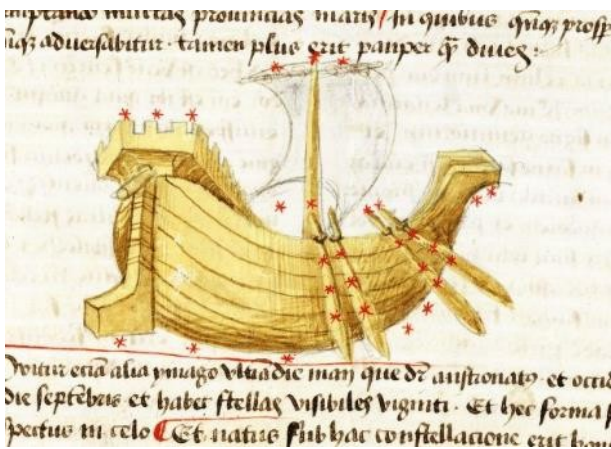 multas provincias maris / in quibus qnqz prosp
adversabitur · tamen plus erit pauper qz dives :
Oritur eciā alia ymago ultiā die man que dr austronatꝰ · et occid
die septēbris et habet stellas visibiles viginti · Et hec forma
spectus in celo ¶ Et natus sub hac constellacione erit